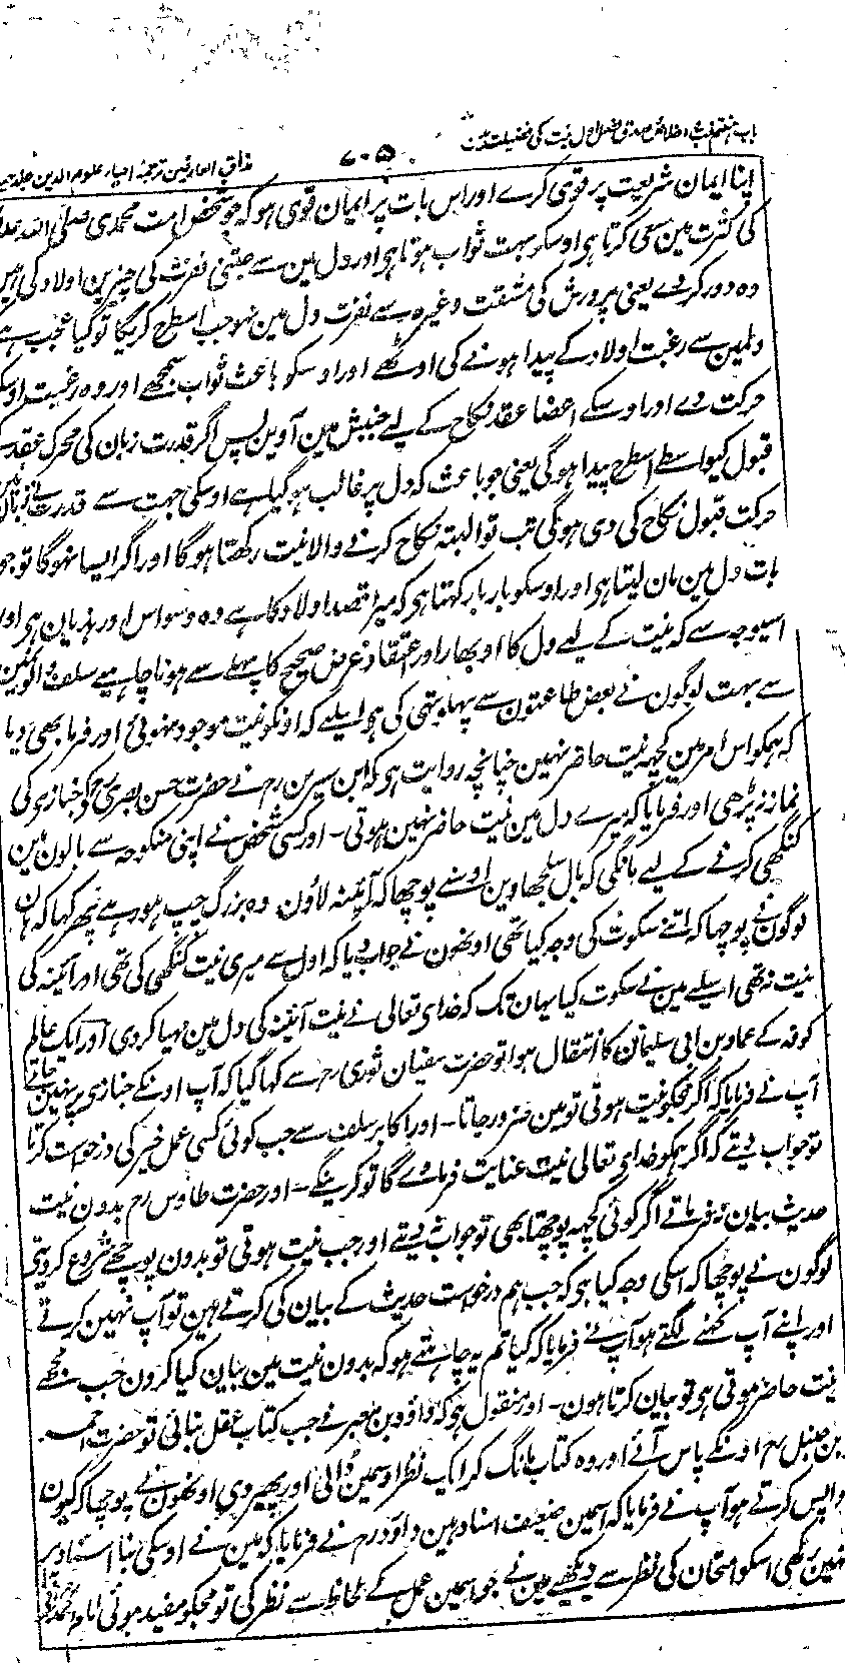 باب ہفتم نیت اخلاص صدق فصل اول نیت کی فضیلت
۷۰۵
مذاق العارفین ترجمہ احیاء علوم الدین جلد
اپنا ایمان شریعت پر قوی کرے اور اس بات پر ایمان قوی ہو کہ جو شخص امت محمدی صلی اللہ علیہ
کی کثرت مین سعی کرتا ہی اوسکو بہت ثواب ہوتا ہی اور دل مین سے جتنی نفرت کی چیزین اولاد کی ہین
وہ دور کردے یعنی پرورش کی مشقت وغیرہ سے نفرت دل مین نہو جب اسطرح کریگا تو کیا عجب ہے
دلمین سے رغبت اولاد کے پیدا ہونے کی اوٹھے اور اوسکو باعث ثواب سمجھے اور وہ رغبت اوسکو
حرکت دے اور اوسکے اعضا عقد نکاح کے لیے جنبش مین آوین پس اگر قدرت زبان کی محرک عقد کے
قبول کیواسطے اسطرح پیدا ہوگی یعنی جو باعث کہ دل پر غالب ہوگیا ہے اوسکی جہت سے قدرت نے زبان کو
حرکت قبول نکاح کی دی ہوگی تب تو البتہ نکاح کرنے والا نیت رکھتا ہوگا اور اگر ایسا نہوگا تو جو
بات دل مین مان لیتا ہی اور اوسکو بار بار کہتا ہی کہ میرا قصد اولاد کا ہے وہ وسواس اور ہذیان ہی اور
اسیوجہ سے کہ نیت کے لیے دل کا اوبھار اور اعتقاد غرض صحیح کا پہلے سے ہونا چاہیے سلف
سے بہت لوگون نے بعض طاعتون سے پہلو تہی کی ہی اسلیے کہ اونکو نیت موجود نہوئی اور فرما بھی دیا
کہ ہمکو اس امر مین کچھ نیت حاضر نہین چنانچہ روایت ہو کہ ابن سیرین رح نے حضرت حسن بصری رح کے جنازہ کی
نماز نہ پڑھی اور فرمایا کہ میرے دل مین نیت حاضر نہین ہوتی۔ اور کسی شخص نے اپنی منکوحہ سے بالون مین
کنگھی کرنے کے لیے مانگی کہ بال سلجھاوین اوسنے پوچھا کہ آئینہ لاؤن وہ بزرگ چپ ہو رہے پھر کہا کہ ہان
لوگون نے پوچھا کہ اتنے سکوت کی وجہ کیا تھی اونھون نے جواب دیا کہ اول سے میری نیت کنگھی کی تھی اور آئینہ کی
نیت نہ تھی اسلیے مین نے سکوت کیا یہان تک کہ خدای تعالی نے نیت آئینہ کی دل مین مہیا کردی اور ایک عالم
کوفہ کے حماد بن ابی سلیمان کا انتقال ہوا تو حضرت سفیان ثوری رح سے کہا گیا کہ آپ اونکے جنازہ پر نہین جاتے
آپ نے فرمایا کہ اگر مجکو نیت ہوتی تو مین ضرور جاتا۔ اور اکابر سلف سے جب کوئی کسی عمل خیر کی درخواست کرتا
تو جواب دیتے کہ اگر ہمکو خدای تعالی نیت عنایت فرماوے گا تو کرینگے۔ اور حضرت طاوس رح بدون نیت
حدیث بیان نہ فرماتے اگر کوئی کچھ پوچھتا بھی تو جواب نہ دیتے اور جب نیت ہوتی تو بدون پوچھے شروع کردیتے
لوگون نے پوچھا کہ اسکی وجہ کیا ہی کہ جب ہم درخواست حدیث کے بیان کی کرتے ہین تو آپ نہین کرتے
اور اپنے آپ کہنے لگتے ہو آپ نے فرمایا کہ کیا تم یہ چاہتے ہو کہ بدون نیت مین بیان کیا کرون جب مجھے
نیت حاضر ہوتی ہو تو بیان کرتا ہون۔ اور منقول ہی کہ داؤد بن محبر نے جب کتاب عقل بنائی تو حضرت احمد
بن حنبل رح اونکے پاس آئے اور وہ کتاب مانگ کر ایک نظر اوسمین ڈالی اور پھیر دی اونھون نے پوچھا کہ کیون
واپس کرتے ہو آپ نے فرمایا کہ اسمین ضعیف اسناد ہین داؤد رح نے فرمایا کہ مین نے اوسکی بنا اسناد پر
نہین رکھی اسکو امتحان کی نظر سے دیکھیے مین نے جو اسمین عمل کے لحاظ سے نظر کی تو مجکو مفید ہوئی امام احمد